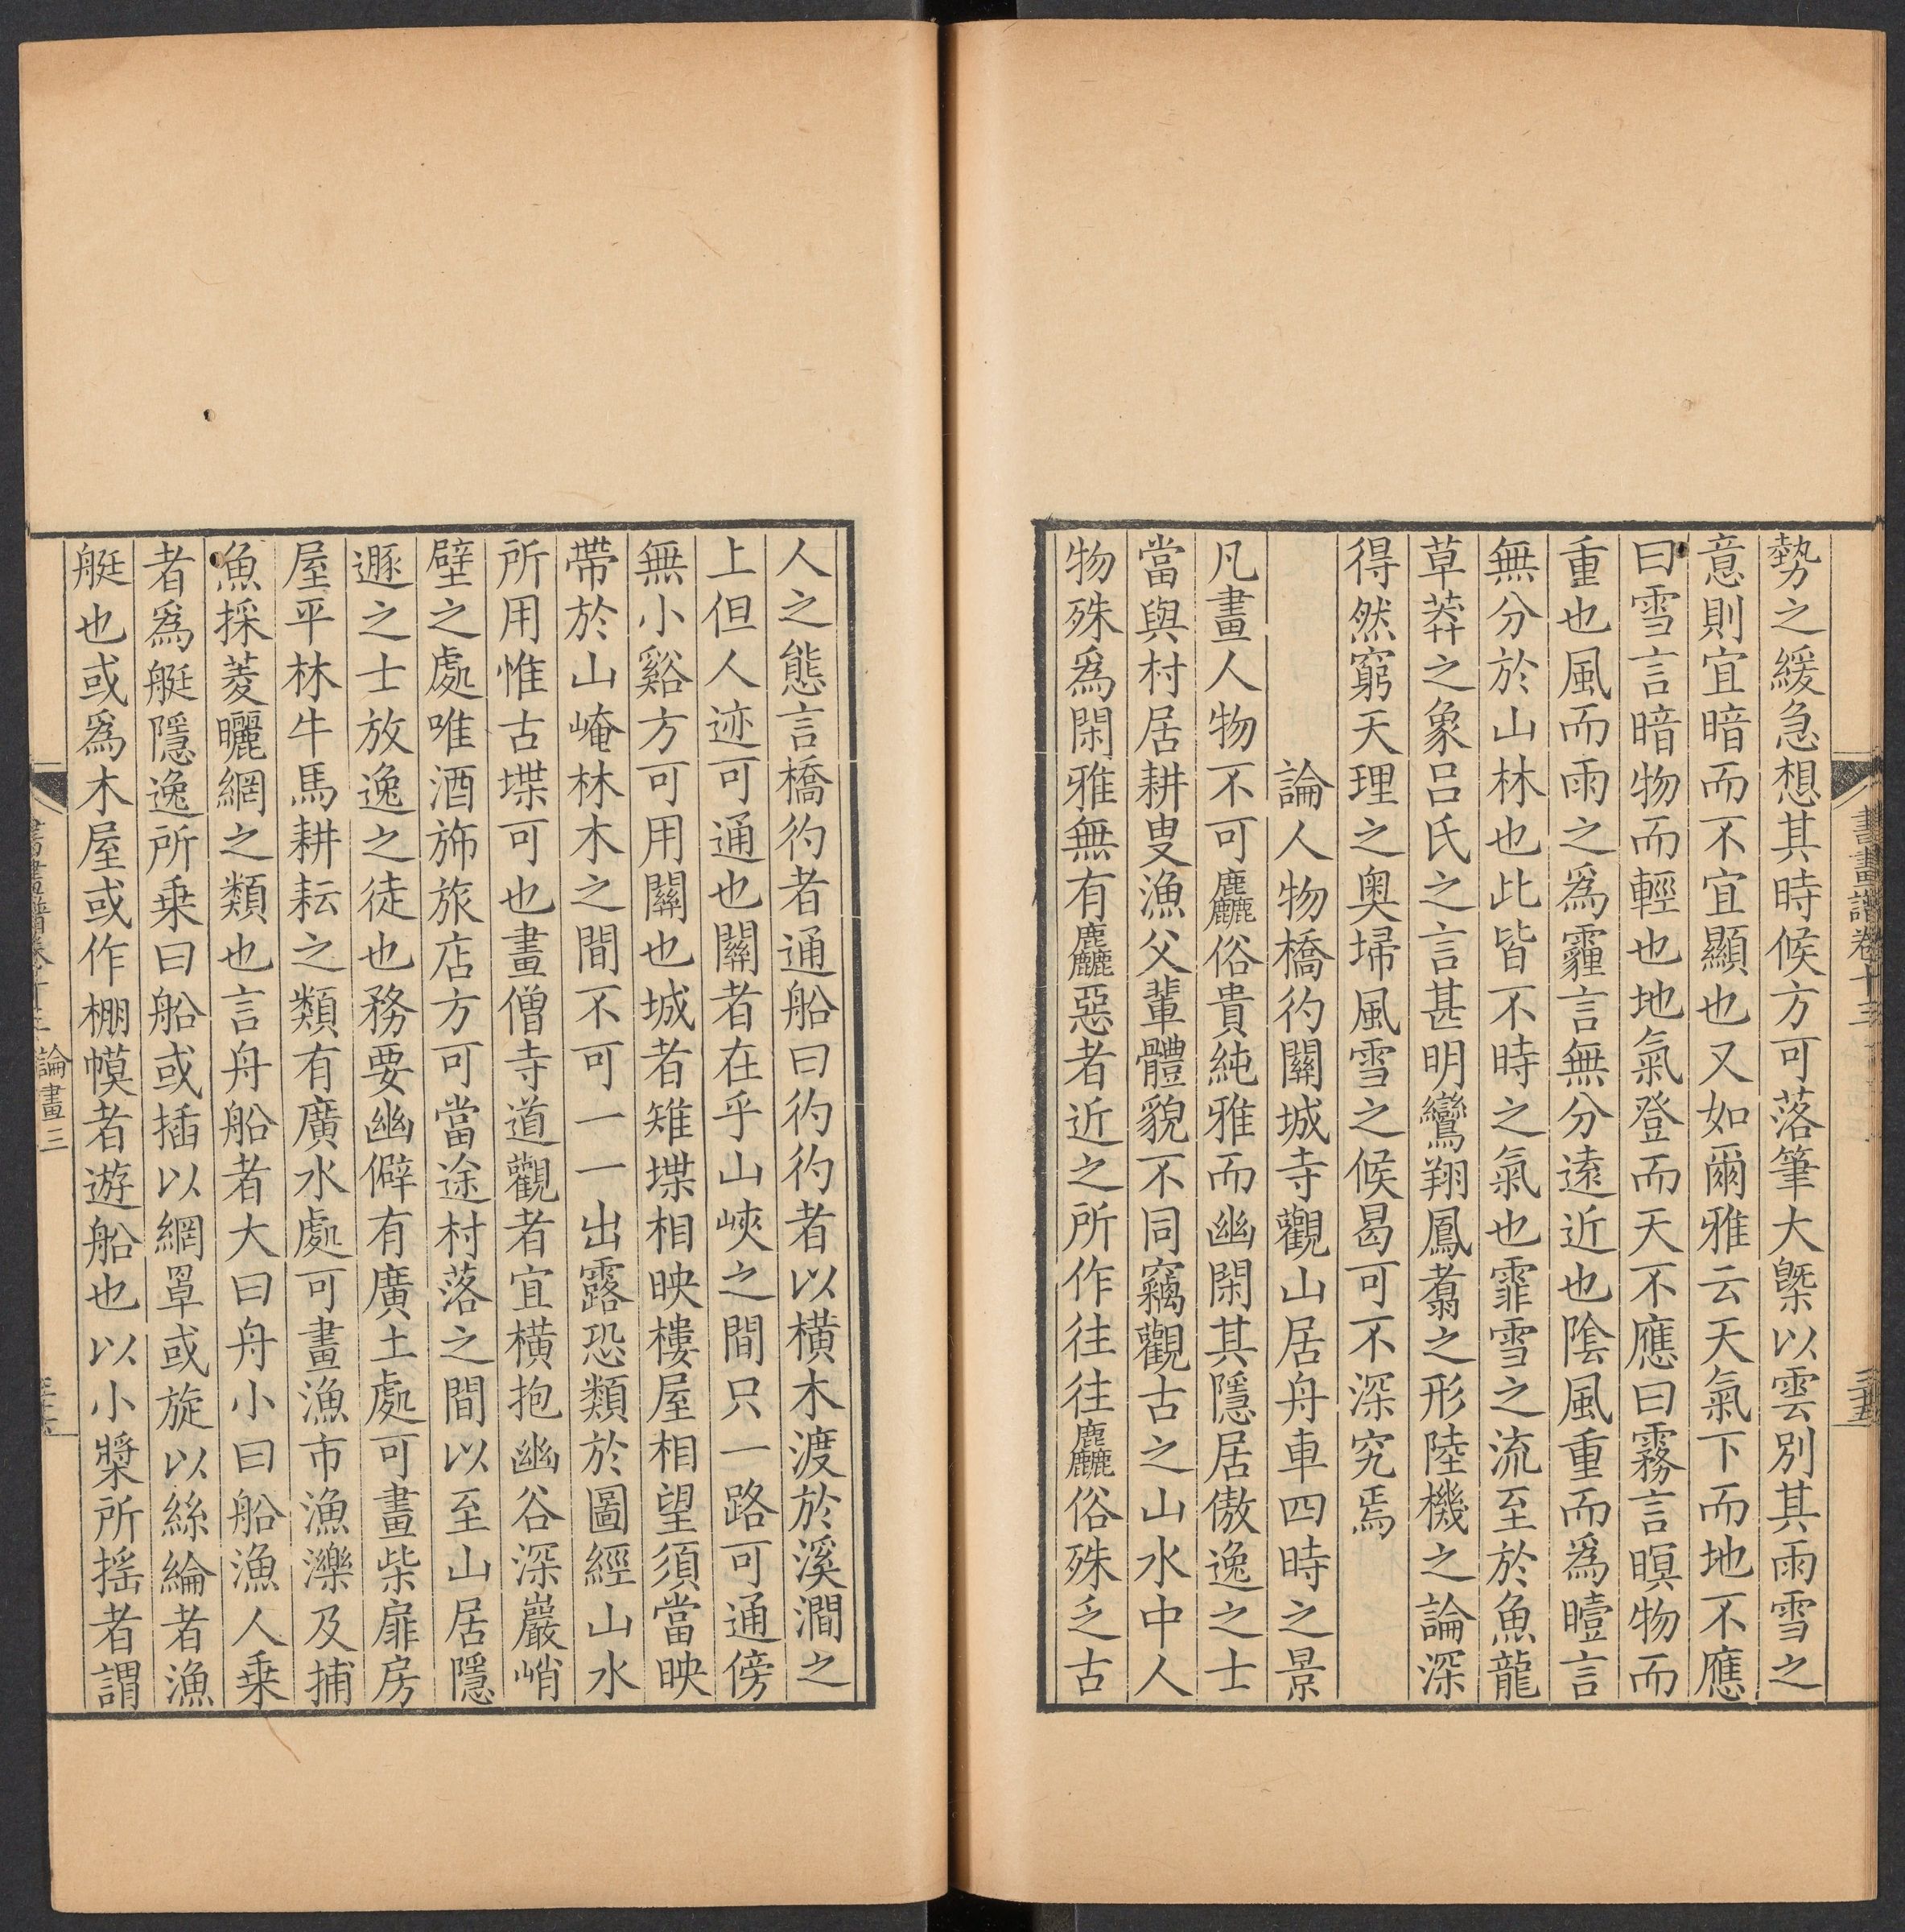 書畫譜卷十三
三十五
勢之緩急想其時候方可落筆大槩以雲別其雨雪之
意則宜暗而不宜顯也又如爾雅云天氣下而地不應
曰雪言暗物而輕也地氣登而天不應曰霧言暝物而
重也風而雨之爲霾言無分遠近也陰風重而爲曀言
無分於山林也此皆不時之氣也霏雪之流至於魚龍
草莽之象呂氏之言甚明鸞翔鳳翥之形陸機之論深
得然窮天理之奧埽風雪之候曷可不深究焉
論人物橋彴關城寺觀山居舟車四時之景
凡畫人物不可麤俗貴純雅而幽閑其隱居傲逸之士
當與村居耕叟漁父輩體貌不同竊觀古之山水中人
物殊爲閑雅無有麤惡者近之所作往往麤俗殊乏古
人之態言橋彴者通船曰彴彴者以横木渡於溪澗之
上但人迹可通也關者在乎山峽之間只一路可通傍
無小谿方可用關也城者雉堞相映樓屋相望須當映
帶於山崦林木之間不可一一出露恐類於圖經山水
所用惟古堞可也畫僧寺道觀者宜横抱幽谷深巖峭
壁之處唯酒斾旅店方可當途村落之間以至山居隱
遯之士放逸之徒也務要幽僻有廣土處可畫柴扉房
屋平林牛馬耕耘之類有廣水處可畫漁市漁濼及捕
魚採菱曬網之類也言舟船者大曰舟小曰船漁人乗
者爲艇隱逸所乗曰船或插以網罩或旋以絲綸者漁
艇也或爲木屋或作棚幙者遊船也以小槳所揺者謂
書畫譜卷十三 論畫三